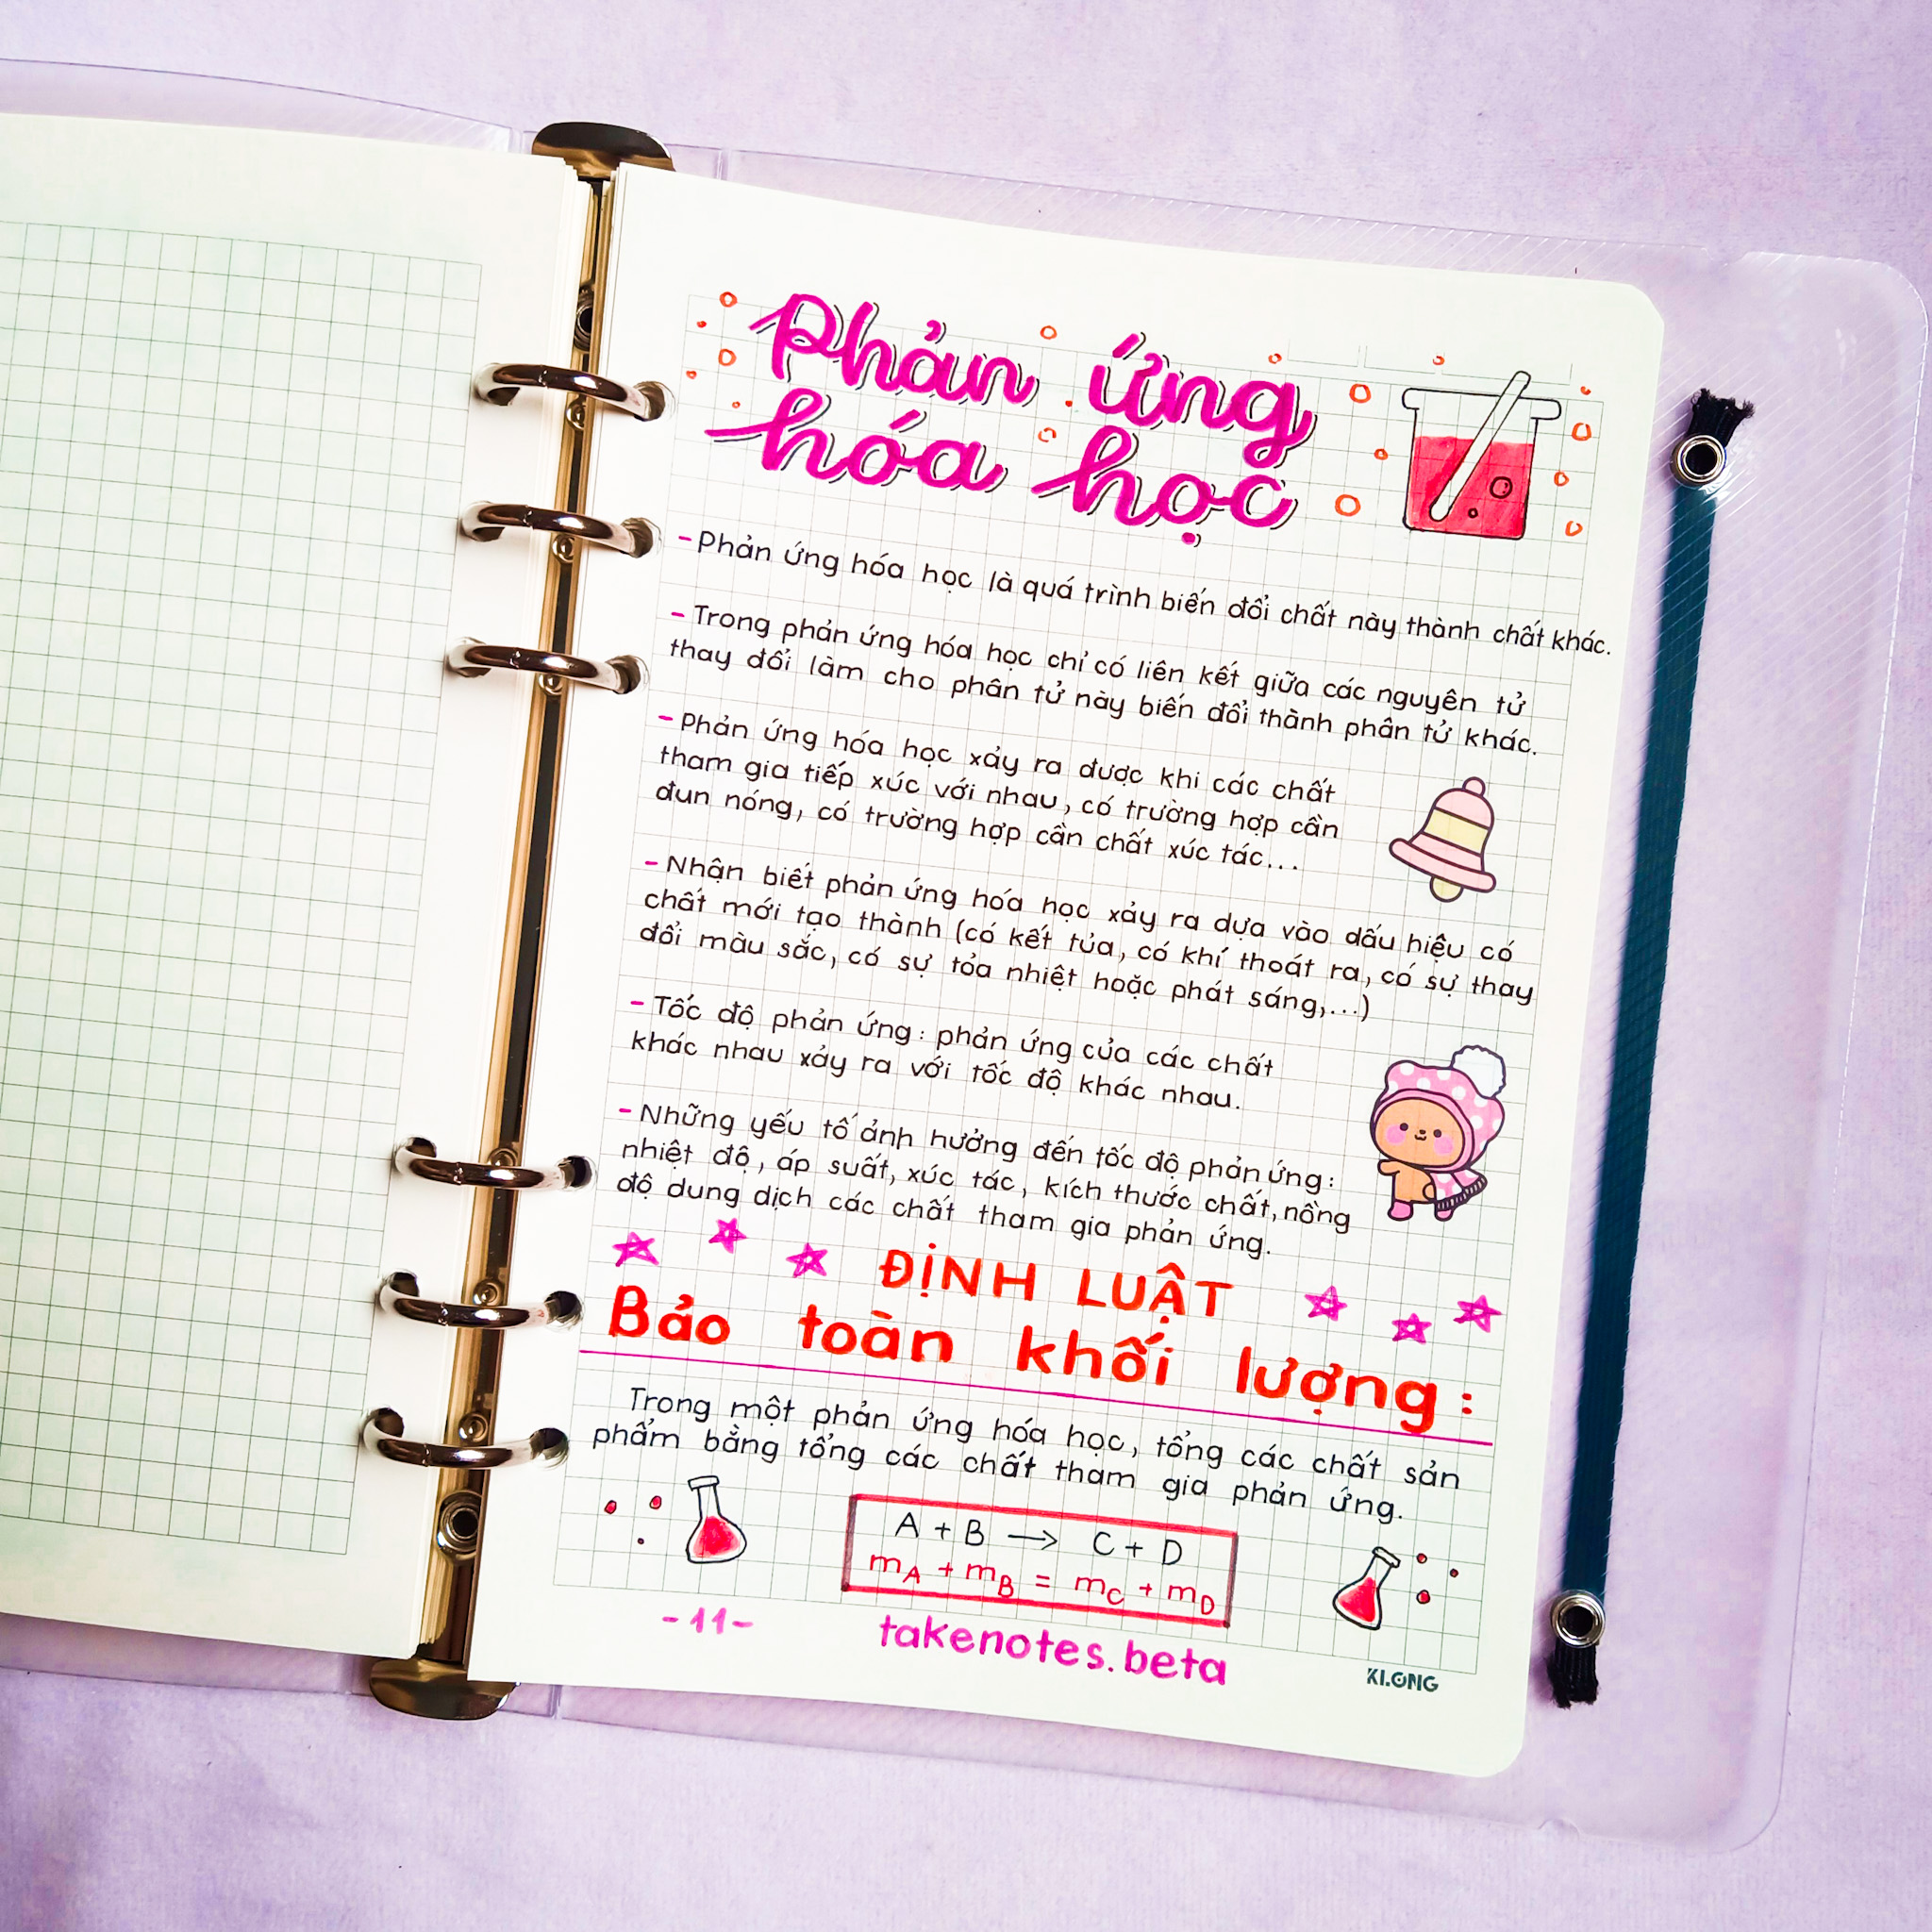 Phản ứng
hóa học
- Phản ứng hóa học là quá trình biến đổi chất này thành chất khác.
- Trong phản ứng hóa học chỉ có liên kết giữa các nguyên tử
thay đổi làm cho phân tử này biến đổi thành phân tử khác.
- Phản ứng hóa học xảy ra được khi các chất
tham gia tiếp xúc với nhau, có trường hợp cần
đun nóng, có trường hợp cần chất xúc tác...
- Nhận biết phản ứng hóa học xảy ra dựa vào dấu hiệu có
chất mới tạo thành (có kết tủa, có khí thoát ra, có sự thay
đổi màu sắc, có sự tỏa nhiệt hoặc phát sáng,...)
- Tốc độ phản ứng: phản ứng của các chất
khác nhau xảy ra với tốc độ khác nhau.
- Những yếu tố ảnh hưởng đến tốc độ phản ứng:
nhiệt độ, áp suất, xúc tác, kích thước chất, nồng
độ dung dịch các chất tham gia phản ứng.
ĐỊNH LUẬT
Bảo toàn khối lượng:
Trong một phản ứng hóa học, tổng các chất sản
phẩm bằng tổng các chất tham gia phản ứng.
A + B → C + D
m_A + m_B = m_C + m_D
- 11 -
takenotes.beta
KLONG